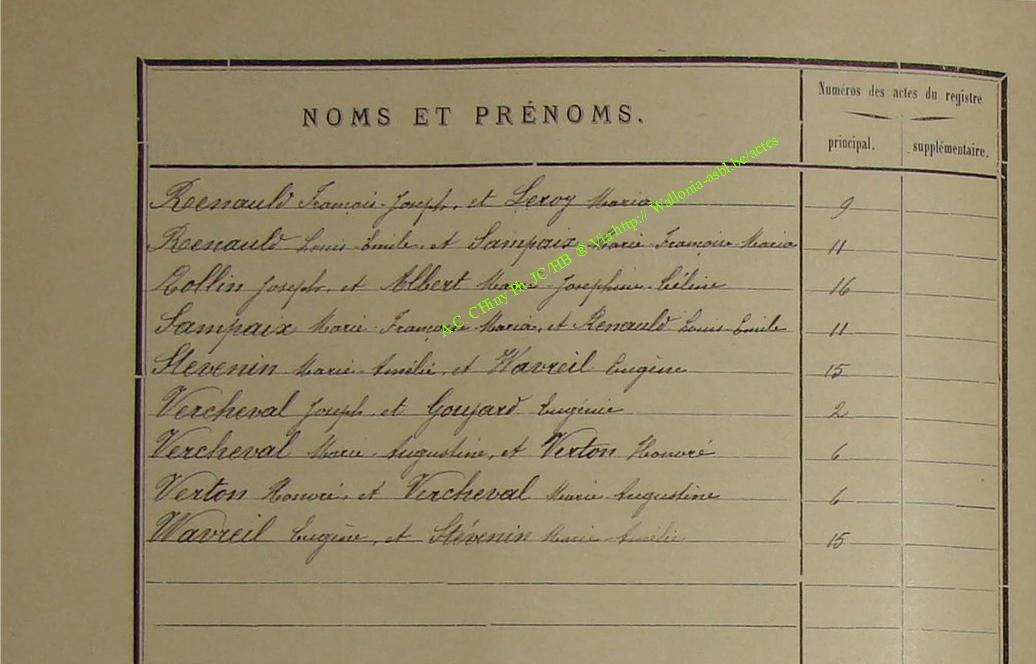 NOMS ET PRÉNOMS.
Numéros des actes du registre
principal.
supplémentaire.
Renauld François-Joseph, et Leroy Maria 9
Renauld Louis-Emile, et Sampaix Marie-Françoise-Maria 11
Collin Joseph, et Albert Marie-Joséphine-Céline 16
Sampaix Marie-Françoise-Maria, et Renauld Louis-Emile 11
Stevenin Marie-Amélie, et Wavreil Eugène 15
Vercheval Joseph, et Goujard Eugénie 2
Vercheval Marie-Augustine, et Verton Honoré 6
Verton Honoré, et Vercheval Marie-Augustine 6
Wavreil Eugène, et Stévenin Marie-Amélie 15
A.C. CHiny Ph. JC/HB ® Via http:// Wallonia-asbl.be/actes